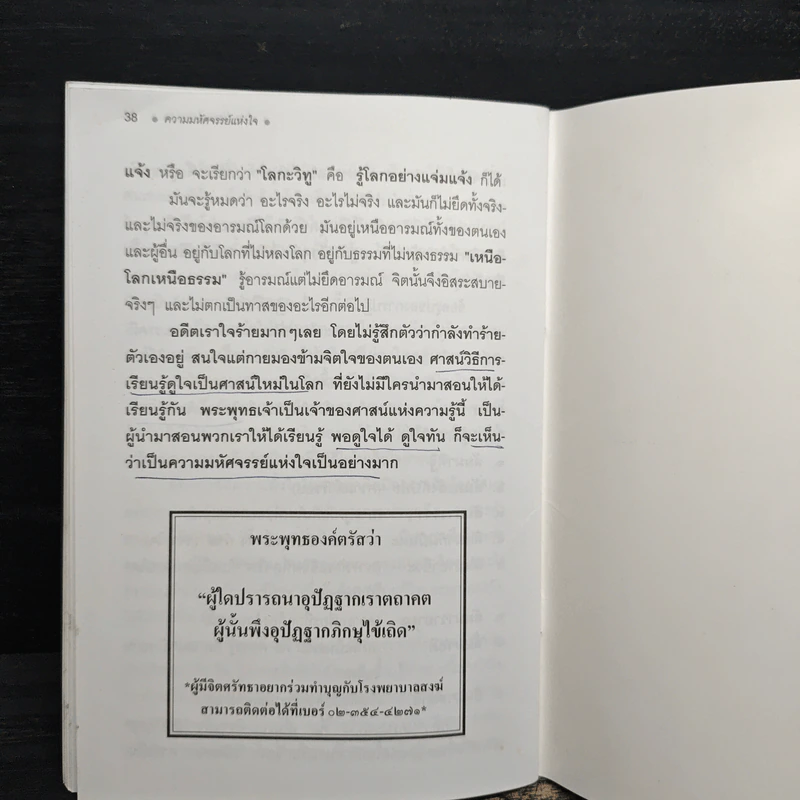 38 ● ความมหัศจรรย์แห่งใจ ●
แจ้ง หรือ จะเรียกว่า "โลกะวิทู" คือ รู้โลกอย่างแจ่มแจ้ง ก็ได้
มันจะรู้หมดว่า อะไรจริง อะไรไม่จริง และมันก็ไม่ยึดทั้งจริง-
และไม่จริงของอารมณ์โลกด้วย มันอยู่เหนืออารมณ์ทั้งของตนเอง
และผู้อื่น อยู่กับโลกที่ไม่หลงโลก อยู่กับธรรมที่ไม่หลงธรรม "เหนือ-
โลกเหนือธรรม" รู้อารมณ์แต่ไม่ยึดอารมณ์ จิตนั้นจึงอิสระสบาย-
จริงๆ และไม่ตกเป็นทาสของอะไรอีกต่อไป
อดีตเราใจร้ายมากๆเลย โดยไม่รู้สึกตัวว่ากำลังทำร้าย-
ตัวเองอยู่ สนใจแต่กายมองข้ามจิตใจของตนเอง ศาสน์วิธีการ-
เรียนรู้ดูใจเป็นศาสน์ใหม่ในโลก ที่ยังไม่มีใครนำมาสอนให้ได้-
เรียนรู้กัน พระพุทธเจ้าเป็นเจ้าของศาสน์แห่งความรู้นี้ เป็น-
ผู้นำมาสอนพวกเราให้ได้เรียนรู้ พอดูใจได้ ดูใจทัน ก็จะเห็น-
ว่าเป็นความมหัศจรรย์แห่งใจเป็นอย่างมาก
พระพุทธองค์ตรัสว่า
“ผู้ใดปรารถนาอุปัฏฐากเราตถาคต
ผู้นั้นพึงอุปัฏฐากภิกษุไข้เถิด”
*ผู้มีจิตศรัทธาอยากร่วมทำบุญกับโรงพยาบาลสงฆ์
สามารถติดต่อได้ที่เบอร์ ๐๒-๓๕๔-๔๒๗๑*